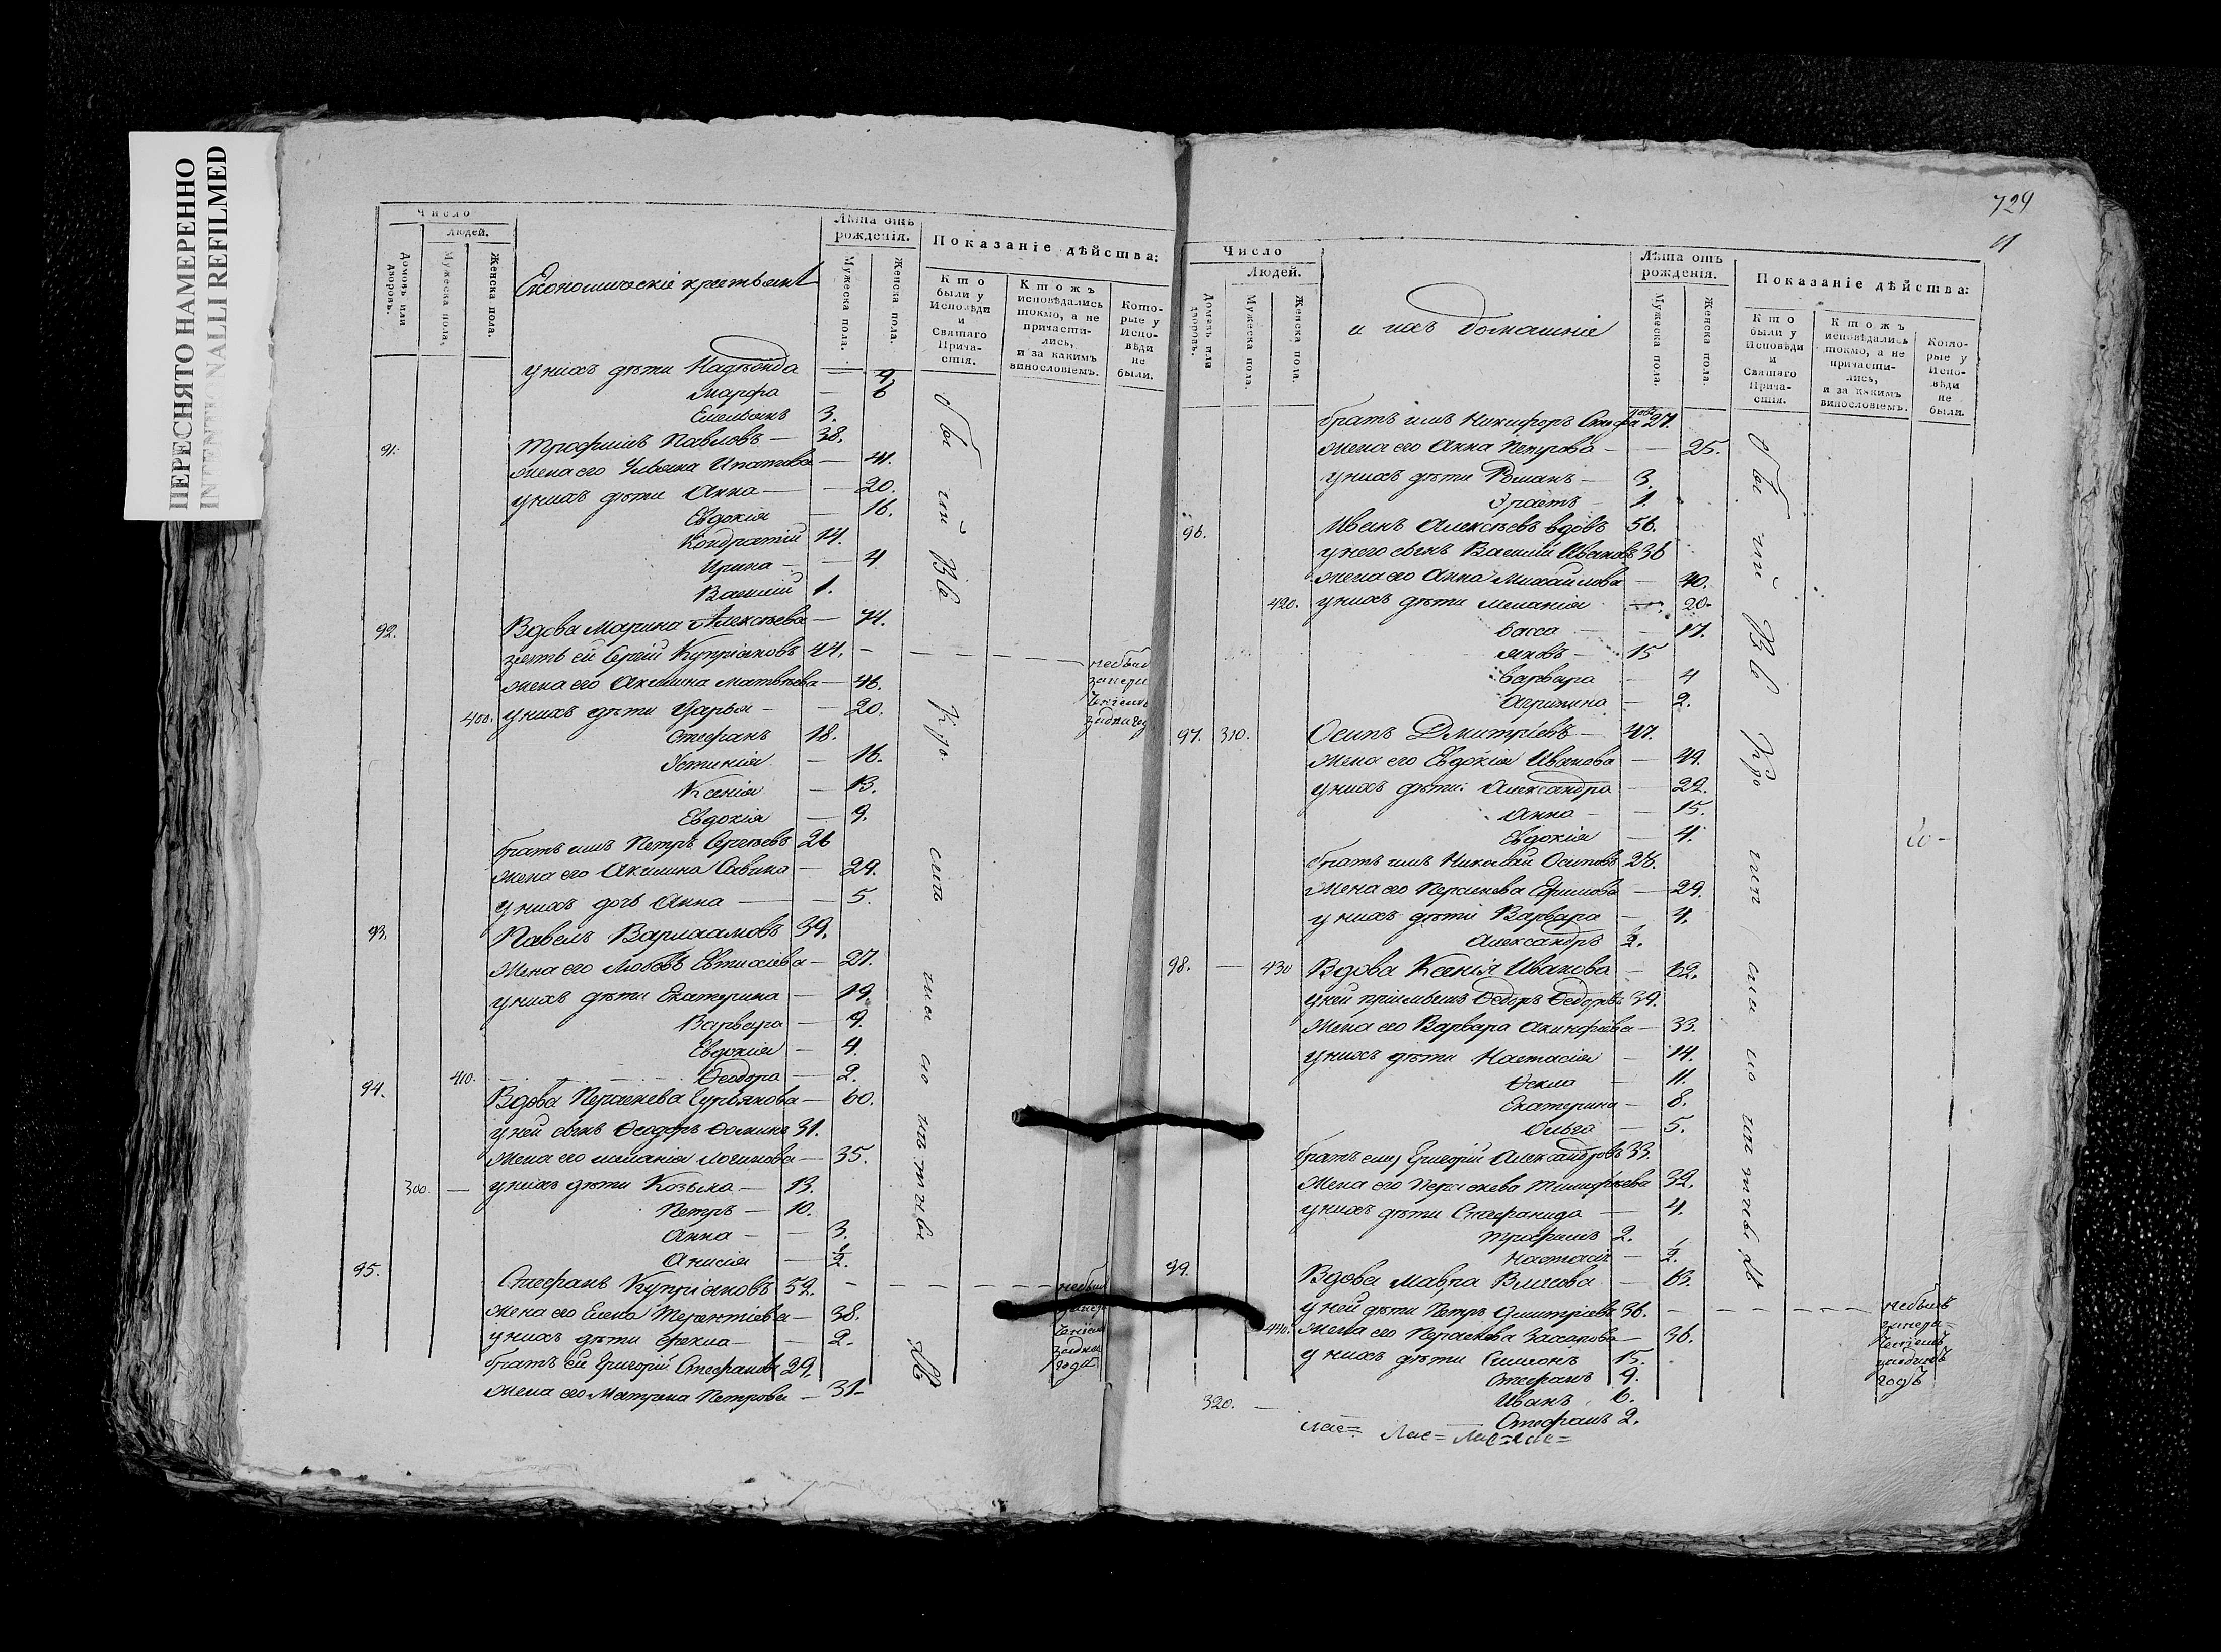 ПЕРЕСНЯТО НАМЕРЕННО
INTENTIONALLI REFILMED
Число
Людей.
Домовъ или дворовъ.
Мужеска пола.
Женска пола.
Економическіе крестьяне
Лѣта отъ рожденія.
Мужеска пола.
Женска пола.
Показаніе дѣйства:
Кто были у Исповѣди и Святаго Причастія.
Ктожъ исповѣдались токмо, а не причастились, и за какимъ винословіемъ.
Которые у Исповѣди не были.
у нихъ дѣти Надѣжда — 9.
Марфа — 6
Емельянъ 3.
91. Трофимъ Павловъ — 38.
жена его Ульяна Ипатова — 41.
у нихъ дѣти Анна — 20.
Евдокія — 16.
Кондратій 14.
Ирина — 4
Василій 1.
92. Вдова Марина Алексѣева — 74.
зять ей Сергій Купріяновъ 44. —
жена его Акилина Матвѣева — 46.
400. у нихъ дѣти Дарья — 20.
Стефанъ 18.
Устинія — 16.
Ксенія — 13.
Евдокія — 9.
братъ имъ Петръ Сергѣевъ 26
жена его Акилина Савина — 29.
у нихъ дочь Анна — 5.
93. Павелъ Варлаамовъ 39.
жена его Любовь Евтихіева — 27.
у нихъ дѣти Екатерина — 19.
Варвара — 9.
Евдокія — 4.
410. Ѳеодора — 2.
94. Вдова Параскева Гурьянова — 60.
у ней сынъ Ѳеодоръ Ѳоминъ 31.
жена его Меланія Логинова — 35.
300. — у нихъ дѣти Козьма — 13.
Петръ — 10.
Анна — 3.
Анисія — 1/2.
95. Стефанъ Купріяновъ 52. —
жена его Елена Терентіева — 38.
у нихъ дѣти Ѳекла — 2.
братъ ей Григорій Стефановъ 29.
жена его Матрона Петрова — 31.
729
Число
Людей.
Домовъ или дворовъ.
Мужеска пола.
Женска пола.
и ихъ домашніе
Лѣта отъ рожденія.
Мужеска пола.
Женска пола.
Показаніе дѣйства:
Кто были у Исповѣди и Святаго Причастія.
Ктожъ исповѣдались токмо, а не причастились, и за какимъ винословіемъ.
Которые у Исповѣди не были.
братъ имъ Никифоръ Стефановъ 27.
жена его Анна Петрова — 25.
у нихъ дѣти Романъ — 3.
Ерастъ — 1.
96. Иванъ Алексѣевъ вдовъ 56.
у него сынъ Василій Ивановъ 36
жена его Анна Михайлова — 40.
420. у нихъ дѣти Меланія — 20.
Васса — 17.
Яковъ — 15
Варвара — 4
Агрипина — 2.
97. 310. Осипъ Дмитріевъ — 47.
жена его Евдокія Иванова — 49.
у нихъ дѣти: Александра — 22.
Анна — 15.
Евдокія — 4.
братъ имъ Николай Осиповъ 28.
жена его Параскева Ефимова — 29.
у нихъ дѣти Варвара — 4.
Александръ 1/2.
98. — 430 Вдова Ксенія Иванова — 62.
у ней пріемышъ Ѳедоръ Ѳедоровъ 39.
жена его Варвара Акинфіева — 33.
у нихъ дѣти Настасія — 14.
Ѳекла — 11.
Екатерина — 8.
Ольга — 5.
братъ ему Григорій Александровъ 33.
жена его Параскева Тимофѣева 32.
у нихъ дѣти Стефанида — 4.
Трофимъ 2.
Настасія — 1/2.
99. Вдова Мавра — 63.
у ней дѣти Петръ Дмитріевъ 36. —
не былъ
годъ
440. жена его Параскева — 36.
у нихъ дѣти Симеонъ 15.
Стефанъ 9.
Иванъ 6.
320. — Стефанъ 2.